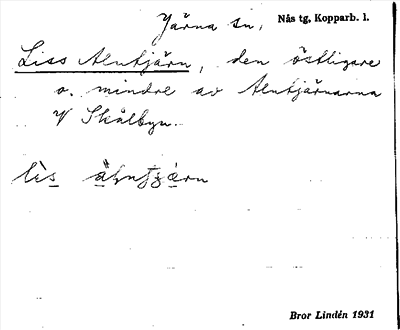 Järna sn, Nås tg, Kopparb. l.
Liss Alntjärn, den östligare
o. mindre av Alntjärnarna
V Skålbyn.
Bror Lindén 1931